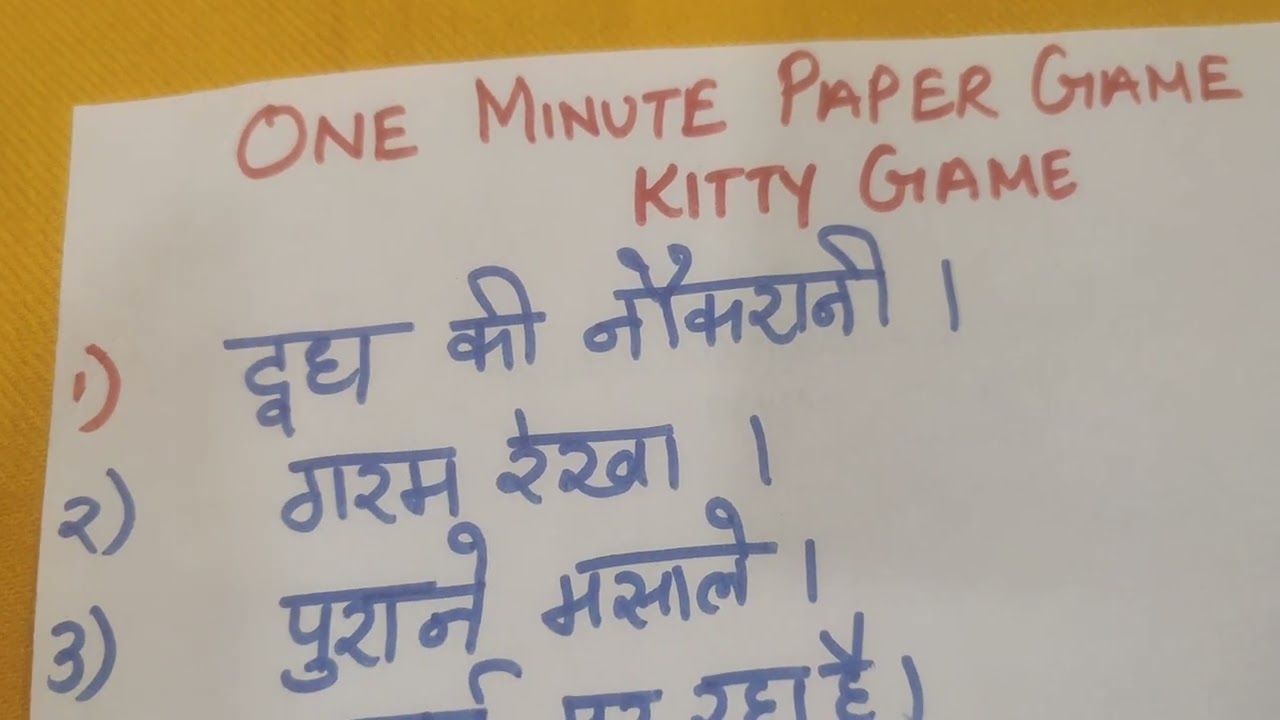 ONE MINUTE PAPER GAME
KITTY GAME
१) दूध की नौकरानी ।
२) गरम रेखा ।
३) पुराने मसाले ।
पर रहा है।